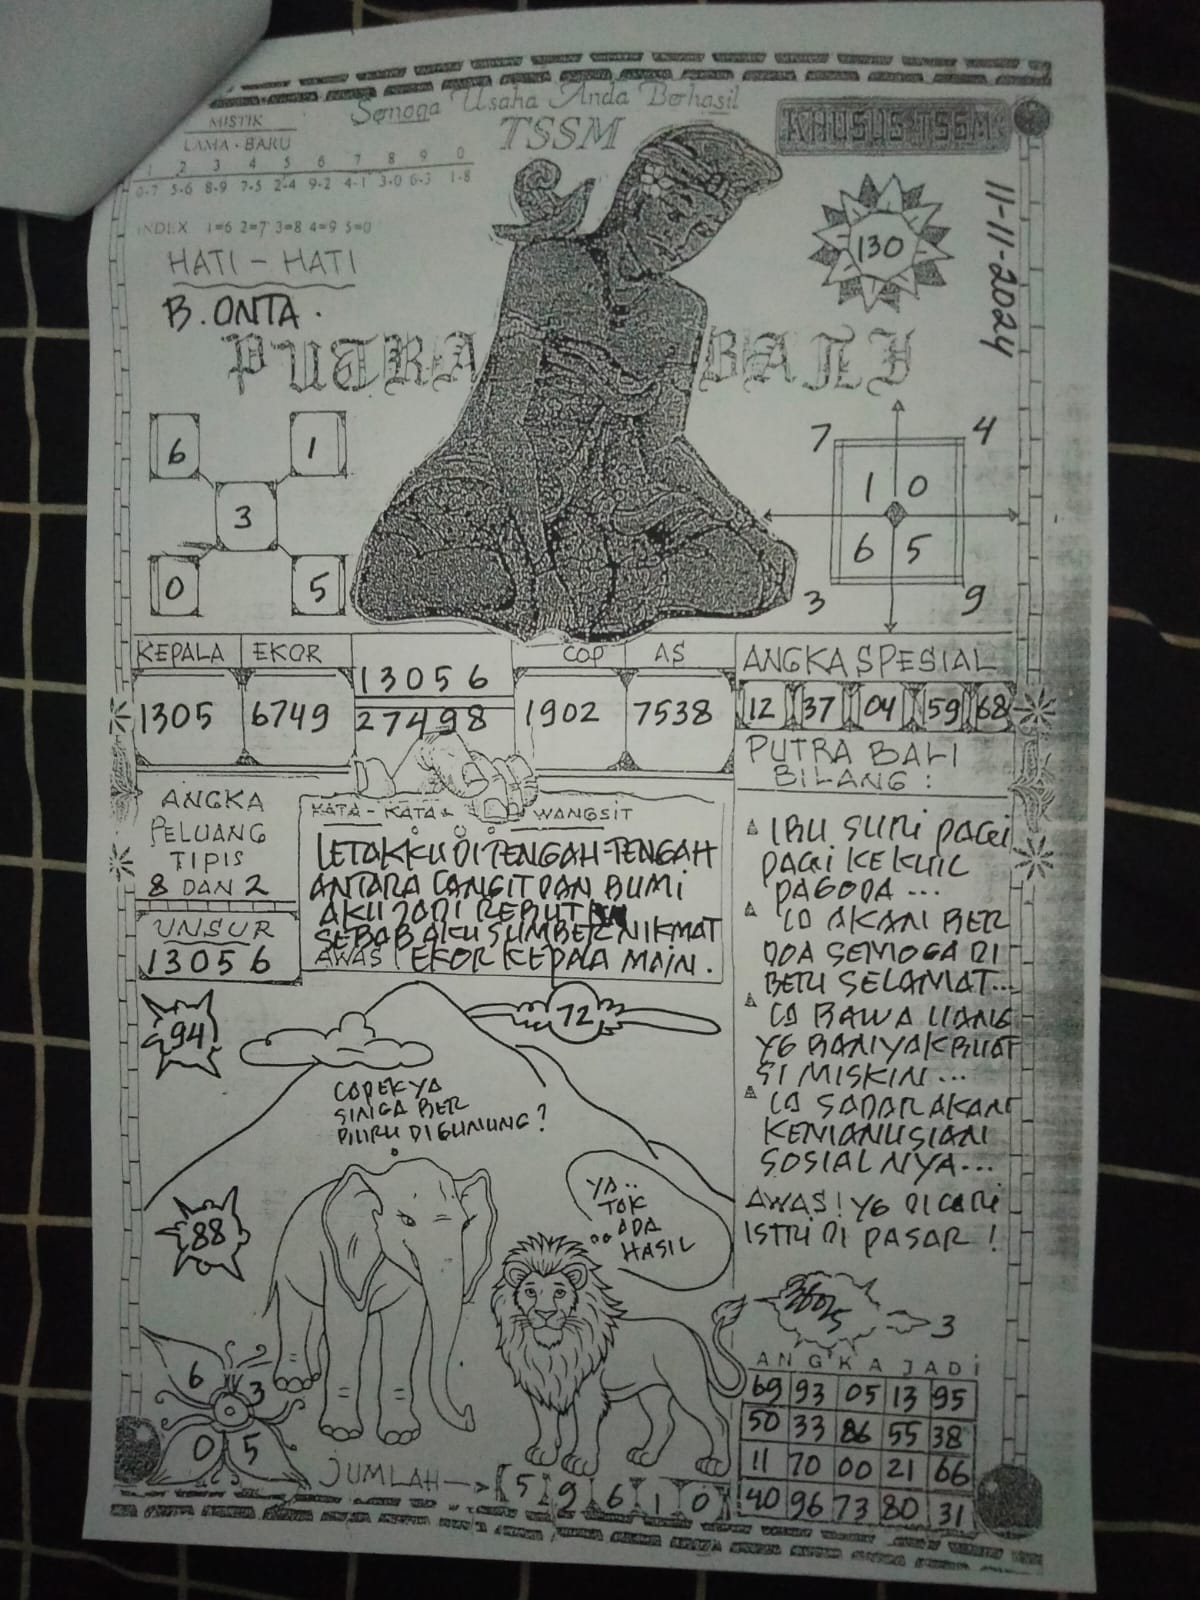 Semoga Usaha Anda Berhasil
TSSM
KHUSUS TSSM
MISTIK
LAMA - BARU
1 2 3 4 5 6 7 8 9 0
0-7 5-6 8-9 7-5 2-4 9-2 4-1 3-0 6-3 1-8
INDEX 1=6 2=7 3=8 4=9 5=0
HATI - HATI
B. ONTA.
130
11-11-2024
PUTRA BALI
6 1
3
0 5
7 4
1 0
6 5
3 9
KEPALA EKOR
1305 6749
13056
27498
COP AS
1902 7538
ANGKA SPESIAL
12 37 04 59 68
ANGKA
PELUANG
TIPIS
8 DAN 2
UNSUR
13056
KATA - KATA WANGSIT
LETAKKU DI TENGAH-TENGAH
ANTARA LANGIT DAN BUMI
AKU JADI REBUT
SEBAB AKU SUMBER NIKMAT
AWAS! EKOR KEPALA MAIN.
PUTRA BALI
BILANG :
IBU SURI PAGI
PAGI KE KUIL
PAGODA ...
AKAN BER
DOA SEMOGA DI
BERI SELAMAT...
BAWA UANG
YG BANYAK BUAT
SI MISKIN ...
SADAR AKAN
KEMANUSIAN
SOSIALNYA...
AWAS! YG DICARI
ISTRI DI PASAR !
94
72
CAPEK YA
SINGA BER
BURU DI GUNUNG?
YA..
TAK
ADA
HASIL
88
6 3
0 5
JUMLAH
5 9 6 1 0
3
ANGKA JADI
69 93 05 13 95
50 33 86 55 38
11 70 00 21 66
40 96 73 80 31